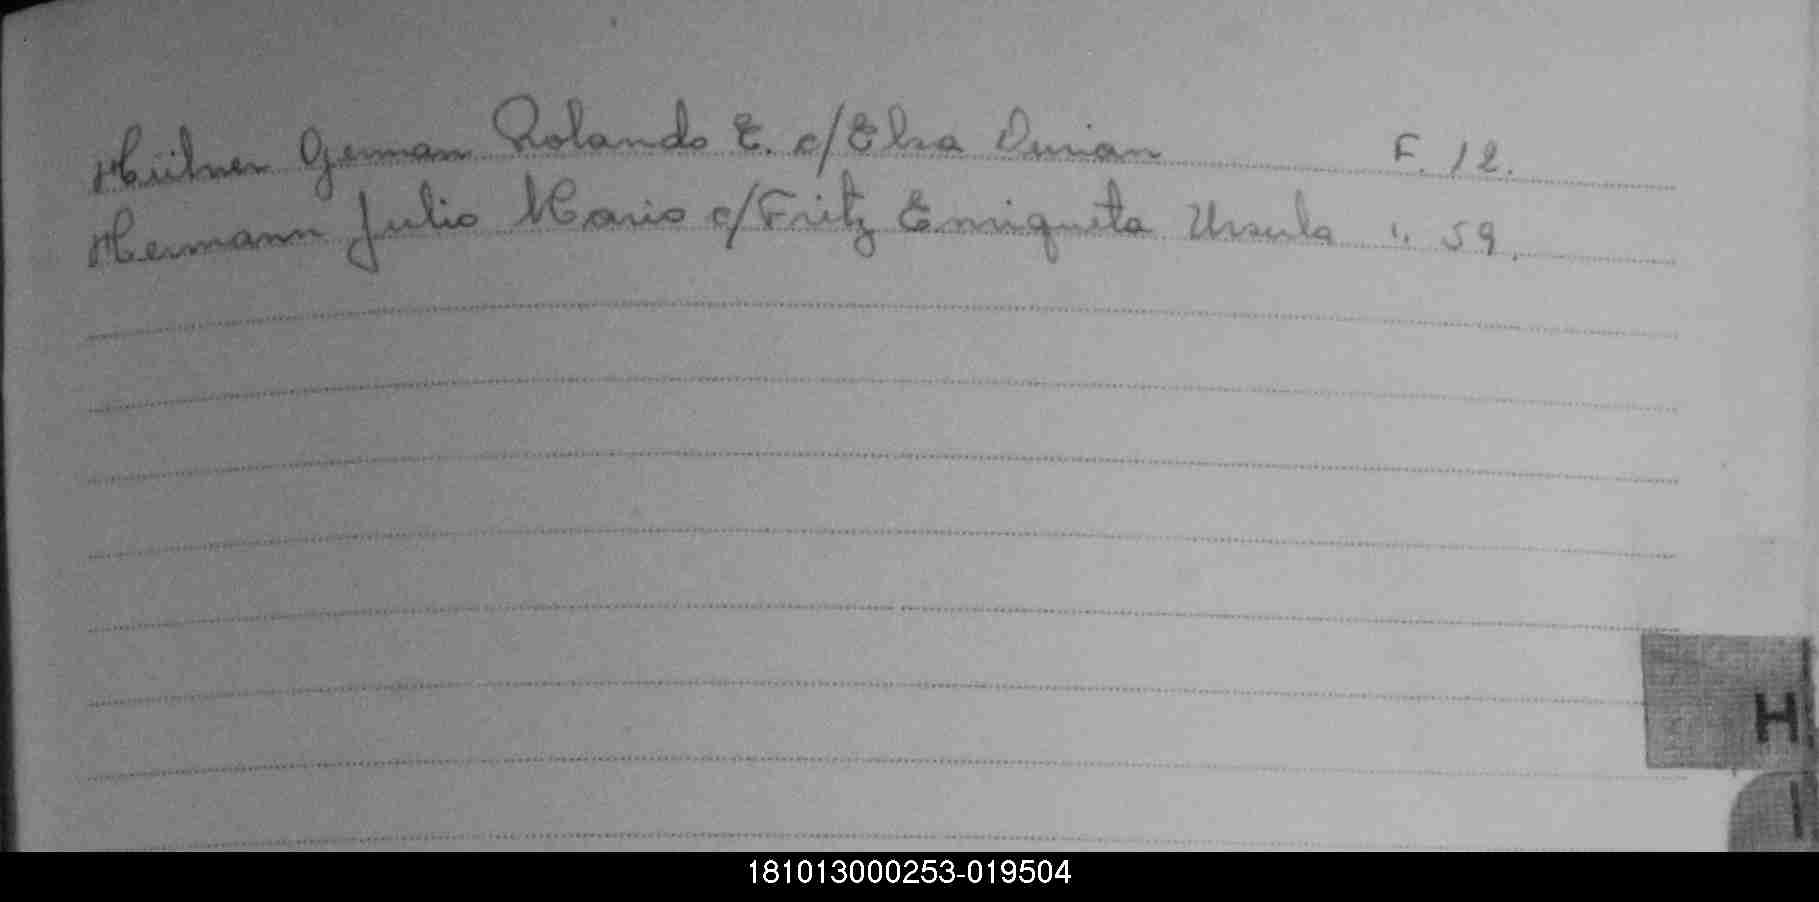 Hüber German Rolando E. c/Elsa Durian F. 12.
Hermann Julio Mario c/Fritz Enriqueta Ursula ". 59.
H
I
181013000253-019504